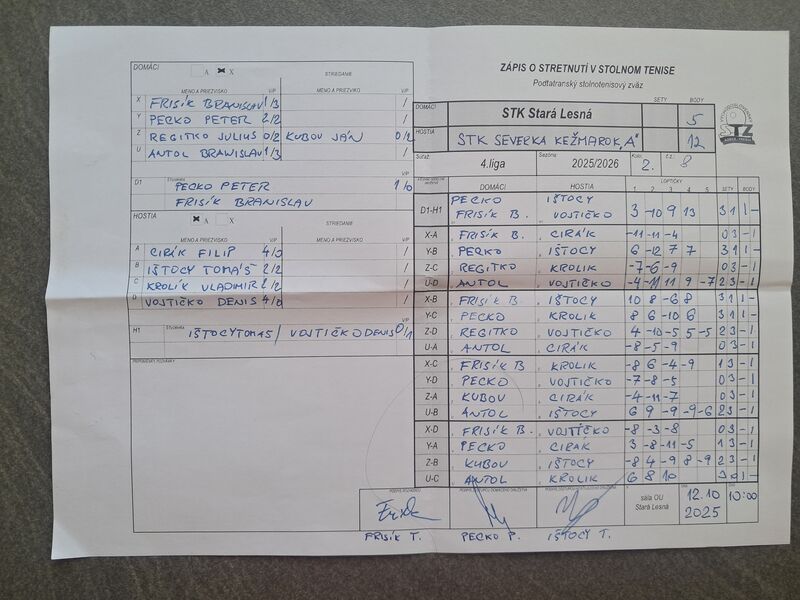 DOMÁCI A X
STRIEDANIE
MENO A PRIEZVISKO V/P MENO A PRIEZVISKO V/P
X FRISÍK BRANISLAV 1/3 /
Y PECKO PETER 2/2 /
Z REGITKO JULIUS 0/2 KUBOV JÁN 0/2
U ANTOL BRANISLAV 1/3 /
D1 Štvorhra
PECKO PETER 1/0
FRISIK BRANISLAV
HOSTIA A X
STRIEDANIE
MENO A PRIEZVISKO V/P MENO A PRIEZVISKO V/P
A CIRÁK FILIP 4/0 /
B IŠTOCY TOMÁŠ 2/2 /
C KROLIK VLADIMIR 2/2 /
D VOJTIČKO DENIS 4/0 /
H1 Štvorhra IŠTOCY TOMAS / VOJTIČKO DENIS 0/1
PRIPOMIENKY, POZNÁMKY
ZÁPIS O STRETNUTÍ V STOLNOM TENISE
Podtatranský stolnotenisový zväz
SETY BODY
DOMÁCI STK Stará Lesná 5
HOSTIA STK SEVERKA KEŽMAROK „A" 12
Súťaž: 4.liga Sezóna: 2025/2026 Kolo: 2. č.z.: 8
DOMÁCI HOSTIA LOPTIČKY SETY BODY
1 2 3 4 5
D1-H1 PECKO IŠTOCY
FRISÍK B. VOJTIČKO 3 -10 9 13 3 1 1 -
X-A FRISÍK B. CIRÁK -11 -11 -4 0 3 - 1
Y-B PECKO IŠTOCY 6 -12 7 7 3 1 1 -
Z-C REGITKO KROLIK -7 -6 -9 0 3 - 1
U-D ANTOL VOJTIČKO -4 -11 11 9 -7 2 3 - 1
X-B FRISÍK B. IŠTOCY 10 8 -6 8 3 1 1 -
Y-C PECKO KROLIK 8 6 -10 6 3 1 1 -
Z-D REGITKO VOJTIČKO 4 -10 -5 5 -5 2 3 - 1
U-A ANTOL CIRÁK -8 -5 -9 0 3 - 1
X-C FRISÍK B KROLIK -8 6 -4 -9 1 3 - 1
Y-D PECKO VOJTIČKO -7 -8 -5 0 3 - 1
Z-A KUBOV CIRÁK -4 -11 -7 0 3 - 1
U-B ANTOL IŠTOCY 6 9 -9 -9 -6 2 3 - 1
X-D FRISÍK B. VOJTIČKO -8 -3 -8 0 3 - 1
Y-A PECKO CIRAK 3 -8 -11 -5 1 3 - 1
Z-B KUBOV IŠTOCY -8 4 -9 8 -9 2 3 - 1
U-C ANTOL KROLIK 6 8 10 3 0 1 -
sála OU
Stará Lesná
12.10
2025
10:00
FRISÍK T. PECKO P. IŠTOCY T.